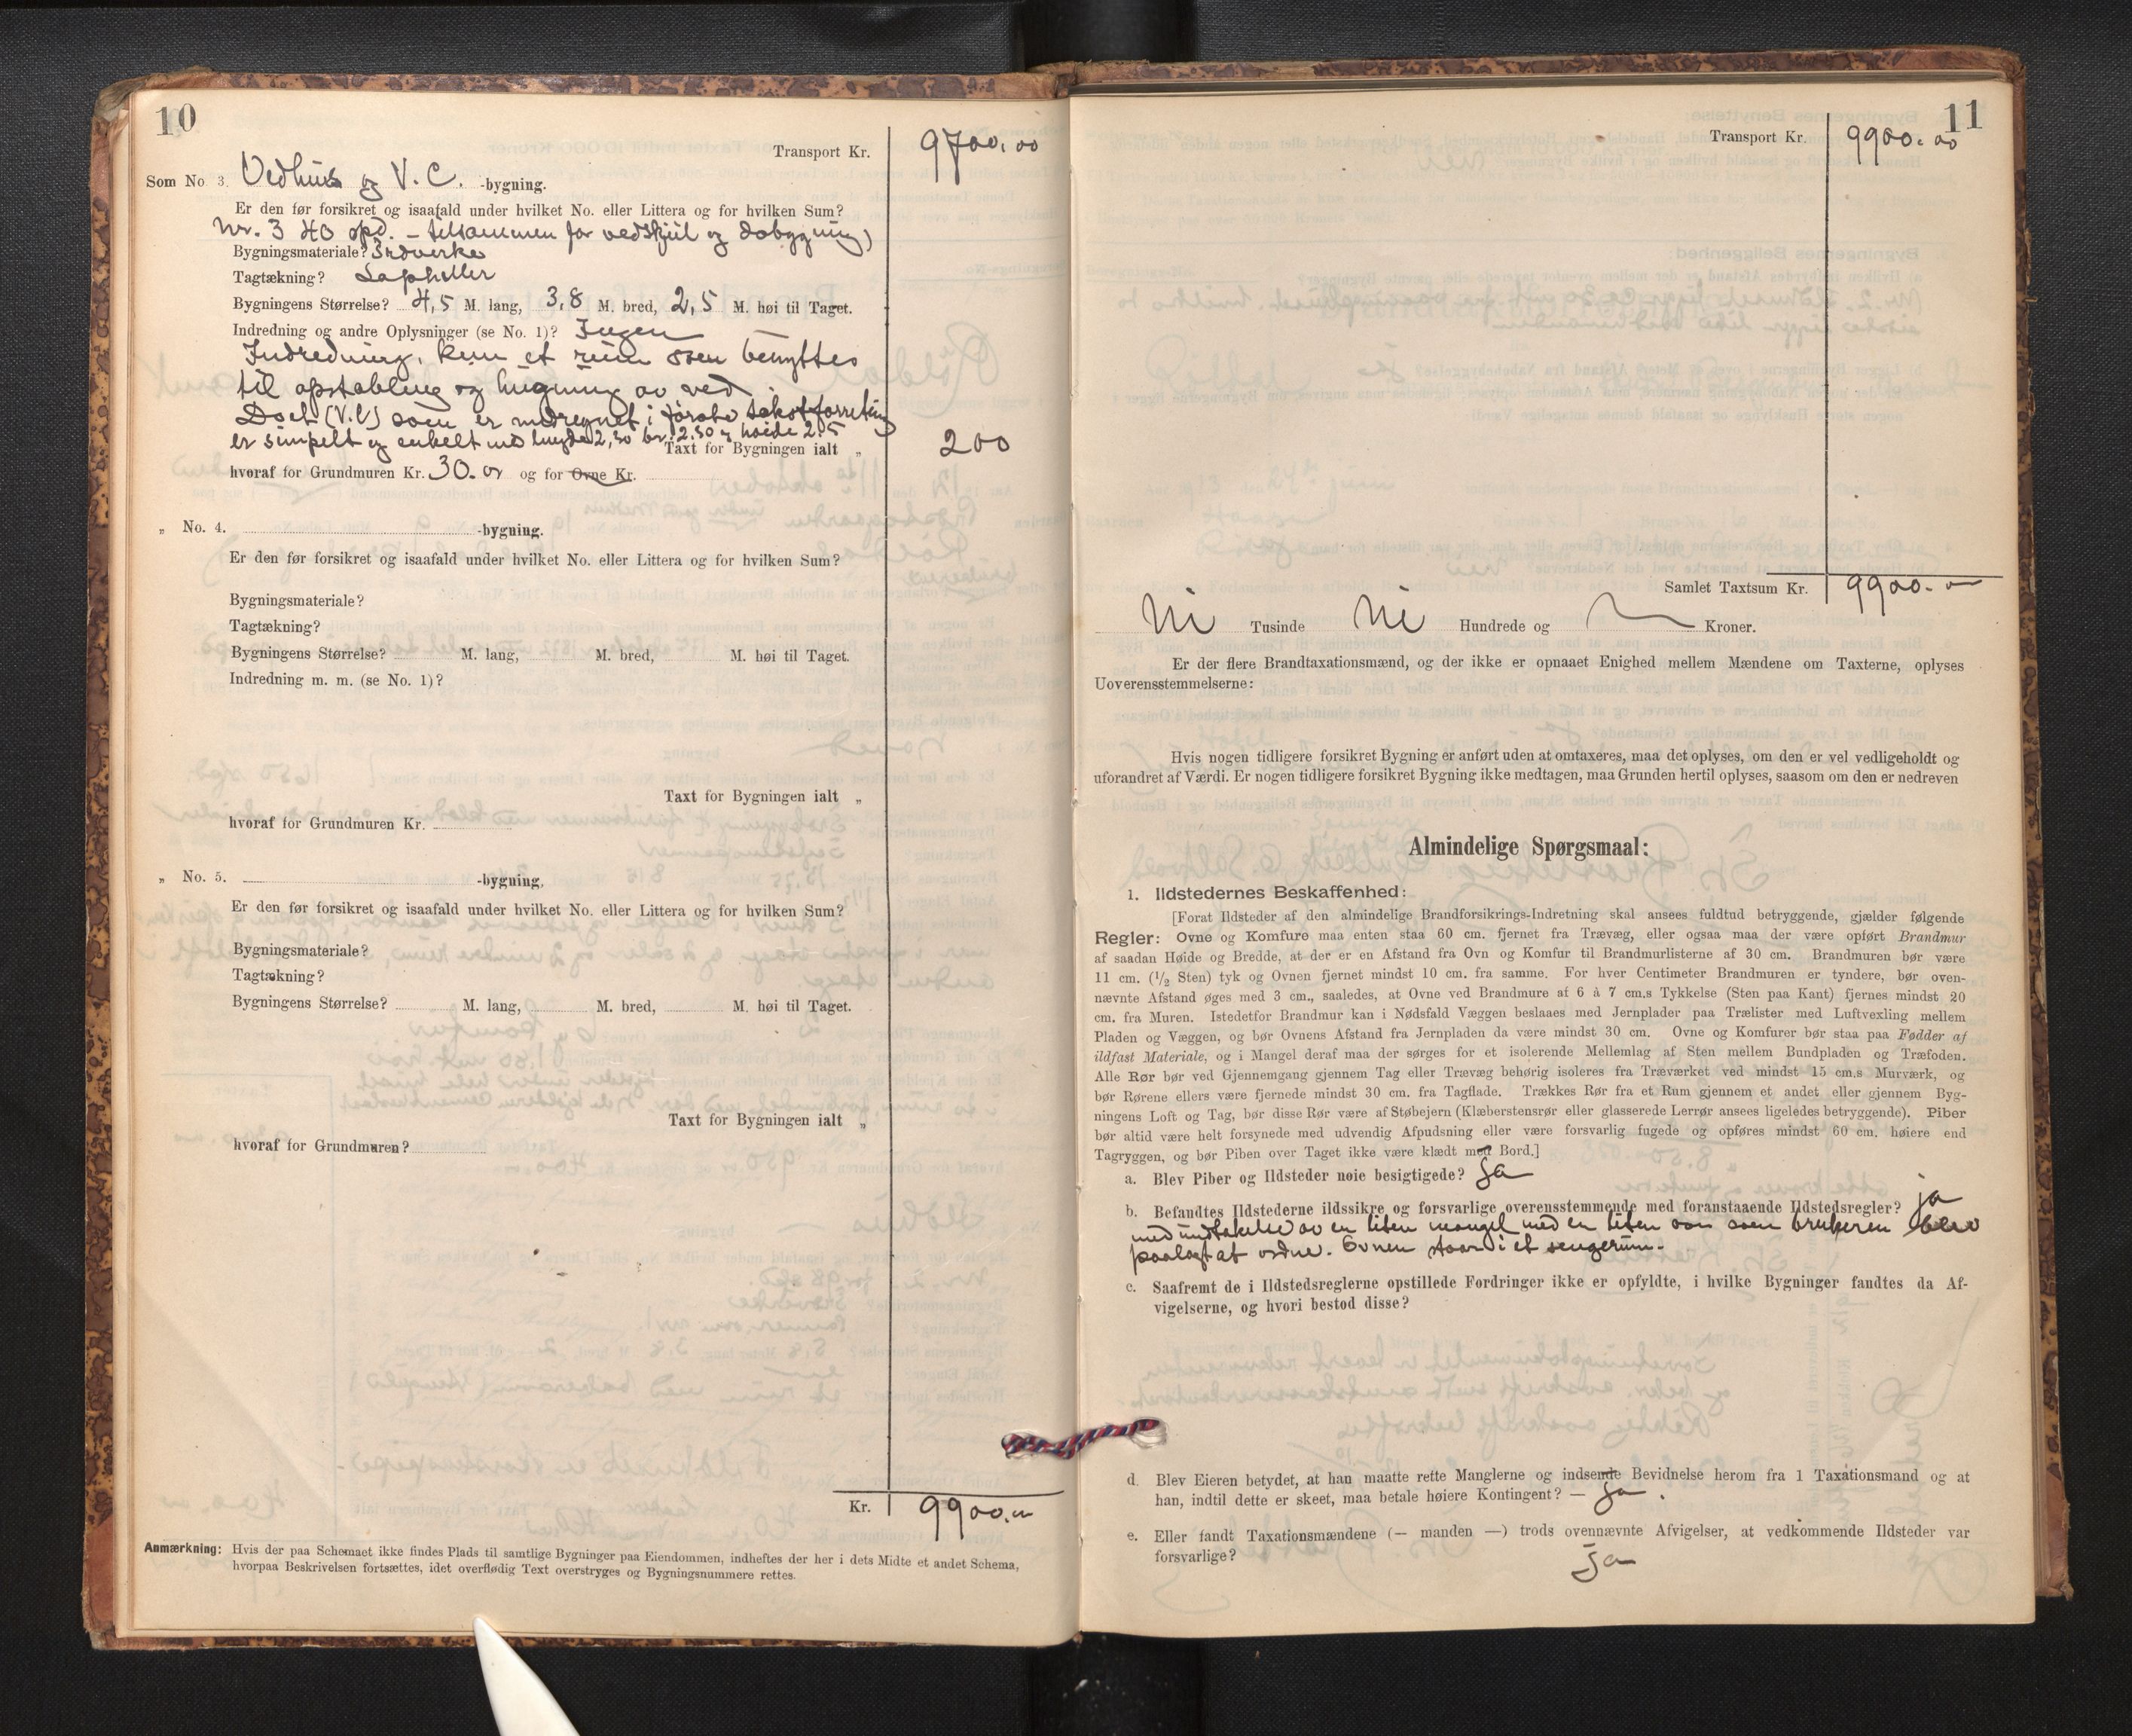 10
Transport Kr. 9700.00
Som No 3. Vedhus og V. C. -bygning.
Er den før forsikret og isaafald under hvilket No. eller Littera og for hvilken Sum?
Nr. 3 40 spd. – tilsammen for vedskjul og dobygning)
Bygningsmateriale? Indverke
Tagtækning? Lapheller
Bygningens Størrelse? 4,5 M. lang, 3,8 M. bred, 2,5 M. høi til Taget.
Indredning og andre Oplysninger (se No. 1)? Ingen
Indredning, kun et rum som benyttes
til opstabling og hugning av ved
Doet (V.C) som er indregnet i første takstforretning
er simpelt og enkelt med lengde 2,30 br. 2.30 og høide 2.5
Taxt for Bygningen ialt „ 200
hvoraf for Grundmuren Kr. 30.00 og for Ovne Kr.
„ No. 4. -bygning.
Er den før forsikret og isaafald under hvilket No. eller Littera og for hvilken Sum?
Bygningsmateriale?
Tagtækning?
Bygningens Størrelse? M. lang, M. bred, M. høi til Taget.
Indredning m. m. (se No. 1)?
Taxt for Bygningen ialt „
hvoraf for Grundmuren Kr.
„ No. 5. -bygning.
Er den før forsikret og isaafald under hvilket No. eller Littera og for hvilken Sum?
Bygningsmateriale?
Tagtækning?
Bygningens Størrelse? M. lang, M. bred, M. høi til Taget.
Taxt for Bygningen ialt „
hvoraf for Grundmuren?
Kr. 9900.00
Anmærkning: Hvis der paa Schemaet ikke findes Plads til samtlige Bygninger paa Eiendommen, indheftes der her i dets Midte et andet Schema,
hvorpaa Beskrivelsen fortsættes, idet overflødig Text overstryges og Bygningsnummere rettes.
11
Transport Kr. 9900.00
Samlet Taxtsum Kr. 9900.00
Ni Tusinde Ni Hundrede og Kroner.
Er der flere Brandtaxationsmænd, og der ikke er opnaaet Enighed mellem Mændene om Taxterne, oplyses
Uoverensstemmelserne:
Hvis nogen tidligere forsikret Bygning er anført uden at omtaxeres, maa det oplyses, om den er vel vedligeholdt og
uforandret af Værdi. Er nogen tidligere forsikret Bygning ikke medtagen, maa Grunden hertil oplyses, saasom om den er nedreven
Almindelige Spørgsmaal:
1. Ildstedernes Beskaffenhed:
[Forat Ildsteder af den almindelige Brandforsikrings-Indretning skal ansees fuldtud betryggende, gjælder følgende
Regler: Ovne og Komfure maa enten staa 60 cm. fjernet fra Trævæg, eller ogsaa maa der være opført Brandmur
af saadan Høide og Bredde, at der er en Afstand fra Ovn og Komfur til Brandmurlisterne af 30 cm. Brandmuren bør være
11 cm. (1/2 Sten) tyk og Ovnen fjernet mindst 10 cm. fra samme. For hver Centimeter Brandmuren er tyndere, bør oven-
nævnte Afstand øges med 3 cm., saaledes, at Ovne ved Brandmure af 6 à 7 cm.s Tykkelse (Sten paa Kant) fjernes mindst 20
cm. fra Muren. Istedetfor Brandmur kan i Nødsfald Væggen beslaaes med Jernplader paa Trælister med Luftvexling mellem
Pladen og Væggen, og bør Ovnens Afstand fra Jernpladen da være mindst 30 cm. Ovne og Komfurer bør staa paa Fødder af
ildfast Materiale, og i Mangel deraf maa der sørges for et isolerende Mellemlag af Sten mellem Bundpladen og Træfoden.
Alle Rør bør ved Gjennemgang gjennem Tag eller Trævæg behørig isoleres fra Træværket ved mindst 15 cm.s Murværk, og
bør Rørene ellers være fjernede mindst 30 cm. fra Tagflade. Trækkes Rør fra et Rum gjennem et andet eller gjennem Byg-
ningens Loft og Tag, bør disse Rør være af Støbejern (Klæberstensrør eller glasserede Lerrør ansees ligeledes betryggende). Piber
bør altid være helt forsynede med udvendig Afpudsning eller være forsvarlig fugede og opføres mindst 60 cm. høiere end
Tagryggen, og bør Piben over Taget ikke være klædt med Bord.]
a. Blev Piber og Ildsteder nøie besigtigede? Ja
b. Befandtes Ildstederne ildssikre og forsvarlige overensstemmende med foranstaaende Ildstedsregler? ja
med undtakelse av en liten mangel med en liten ovn som brukeren blev
paalagt at ordne. Ovnen staar i et sengerum.
c. Saafremt de i Ildstedsreglerne opstillede Fordringer ikke er opfyldte, i hvilke Bygninger fandtes da Af-
vigelserne, og hvori bestod disse?
d. Blev Eieren betydet, at han maatte rette Manglerne og indsende Bevidnelse herom fra 1 Taxationsmand og at
han, indtil dette er skeet, maa betale høiere Kontingent? — Ja.
e. Eller fandt Taxationsmændene (— manden —) trods ovennævnte Afvigelser, at vedkommende Ildsteder var
forsvarlige? Ja